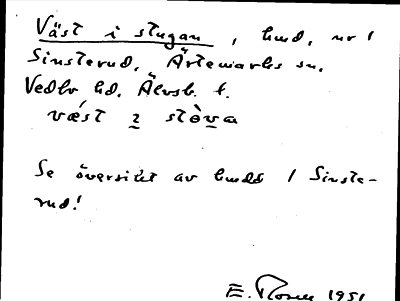 Väst i stugan, hmd. nr 1
Sinsterud, Ärtemarks sn.
Vedbo hd. Älvsb. l.
vǽst 2 stò̤va
Se översikt av hmdd / Sinste-
rud!
E. 1951